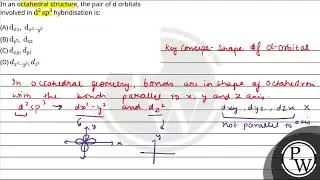 In an octahedral structure, the pair of d orbitals
involved in d² sp³ hybridisation is:
(A) dz², dx²-y²
(B)
(C)
(D) dx²-y², dz²
Key Concept - Shape of d-orbital
In octahedral geometry, bonds are in shape of octahedron
with the bonds parallel to x, y and z axis.
d²sp³ → dx²-y² and dz² dxy, dyz, dzx X
Not parallel to axis
y
x
y
PW